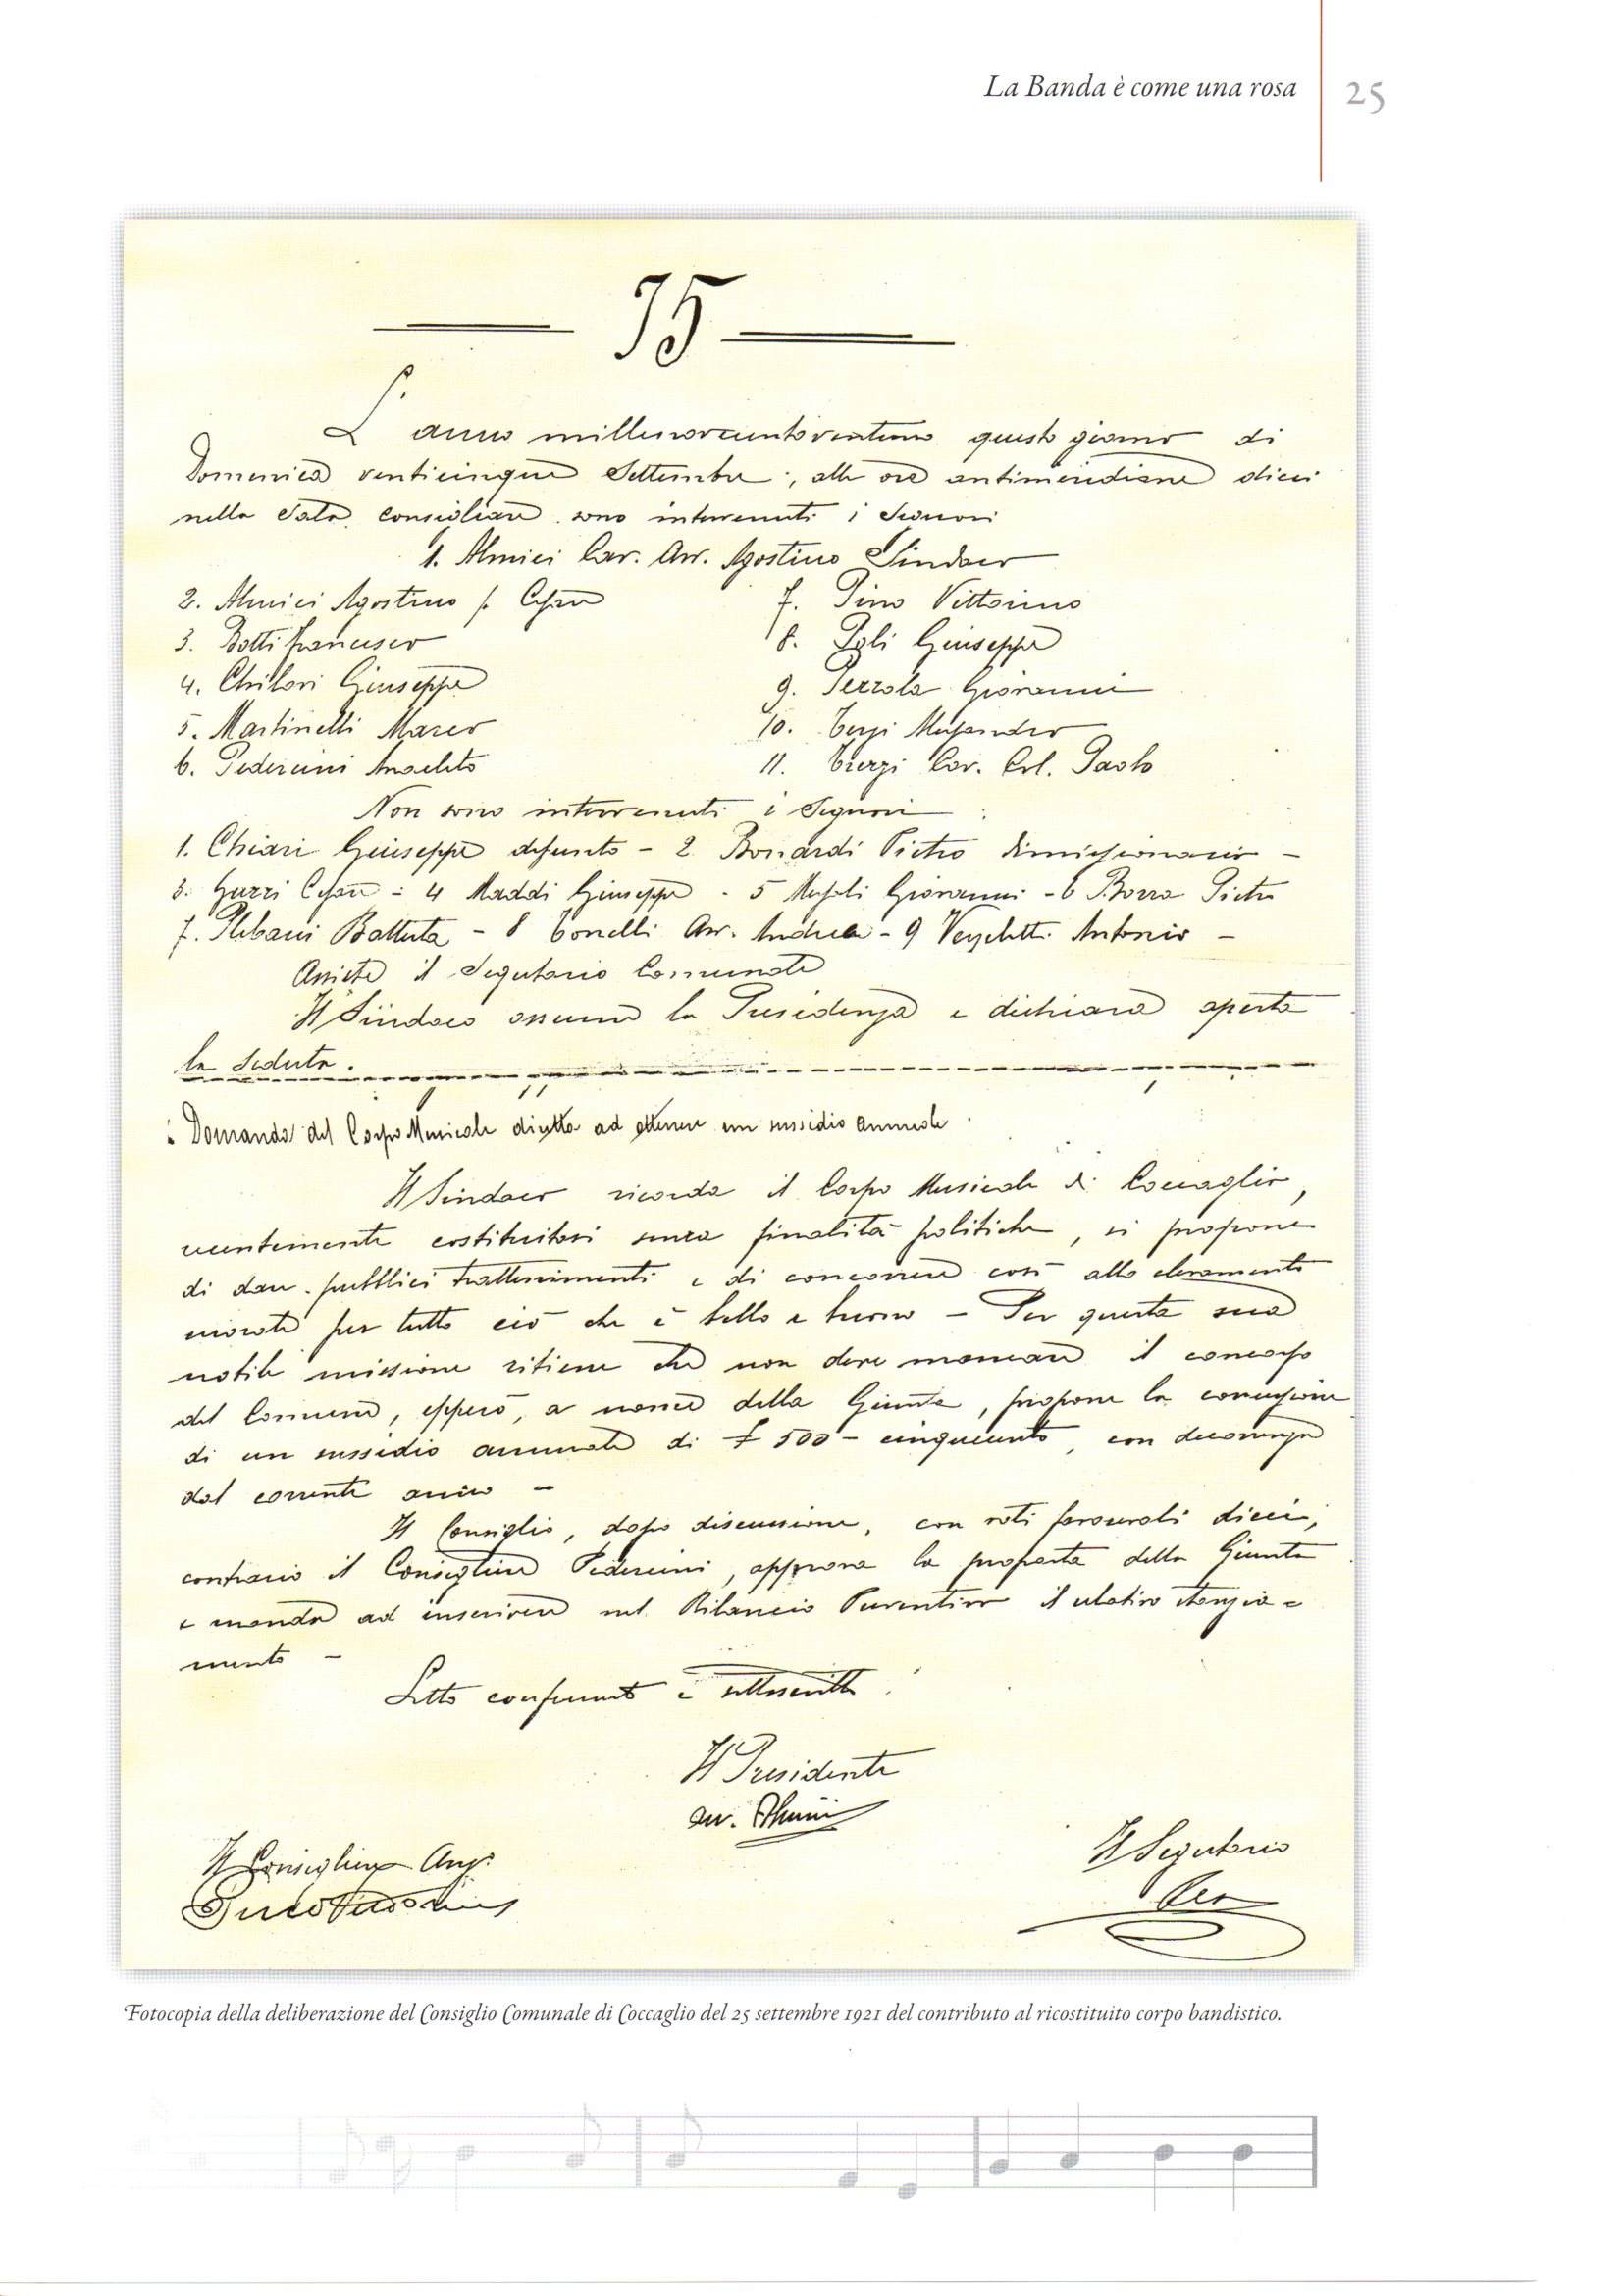 La Banda è come una rosa
25
75
L' anno millenovecentoventuno questo giorno di
Domenica venticinque Settembre, alle ore antimeridiane dieci
nella Sala consigliare sono intervenuti i Signori
1. Almici Cav. Avv. Agostino Sindaco
2. Almici Agostino f. Cesare
3. Botti Francesco
4. Chilovi Giuseppe
5. Martinelli Marco
6. Pedercini Anacleto
7. Pino Vittorino
8. Poli Giuseppe
9. Pezzola Giovanni
10. Terzi Alessandro
11. Terzi Cav. Col. Paolo
Non sono intervenuti i Signori :
1. Chiari Giuseppe defunto - 2 Bonardi Pietro dimissionario -
3. Cesare - 4 Maddi Giuseppe - 5 Giovanni - 6 Borra Pietro
7. Plebani Battista - 8 Tonelli Avv. Andrea - 9 Antonio -
Assiste il Segretario Comunale
Il Sindaco assume la Presidenza e dichiara aperta
la seduta.
Domanda del Corpo Musicale diretta ad ottenere un sussidio annuale
Il Sindaco ricorda il Corpo Musicale di Coccaglio,
recentemente costituitosi senza finalità politiche, si propone
di dare pubblici trattenimenti e di concorrere così allo elevamento
morale per tutto ciò che è bello e buono - Per questa sua
nobile missione ritiene che non deve mancare il concorso
del Comune, epperò, a nome della Giunta, propone la concessione
di un sussidio annuale di £ 500 - cinquecento, con decorrenza
dal corrente anno -
Il Consiglio, dopo discussione, con voti favorevoli dieci,
contrario il Consigliere Pedercini, approva la proposta della Giunta
e manda ad inscrivere nel Bilancio Preventivo il relativo stanzia=
mento -
Letto confermato e sottoscritto.
Il Presidente
avv. Almici
Il Consigliere Anz.
Il Segretario
Fotocopia della deliberazione del Consiglio Comunale di Coccaglio del 25 settembre 1921 del contributo al ricostituito corpo bandistico.